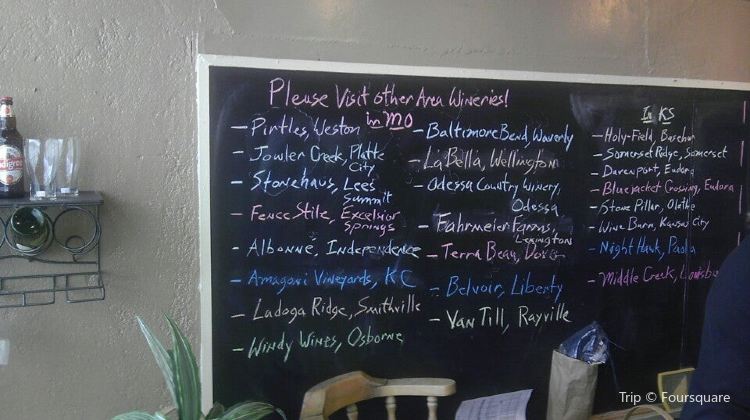 Please Visit other Area Wineries!
in MO
- Pirtles, Weston
- Jowler Creek, Platte
City
- Stonehaus, Lees
Summit
- Fence Stile, Excelsior
Springs
- Albonne, Independence
- Amagoni Vineyards, KC
- Ladoga Ridge, Smithville
- Windy Wines, Osborne
- Baltimore Bend, Waverly
- LaBella, Wellington
- Odessa Country Winery,
Odessa
- Fahrmeier Farms,
Lexington
- Terra Beau,
- Belvoir, Liberty
- Van Till, Rayville
In KS
- Holy-Field, Basehor
- Somerset Ridge, Somerset
- Davenport, Eudora
- Bluejacket Crossing, Eudora
- Stone Pillar, Olathe
- Wine Barn, Kansas City
- Night Hawk, Paola
- Middle Creek,
Trip © Foursquare